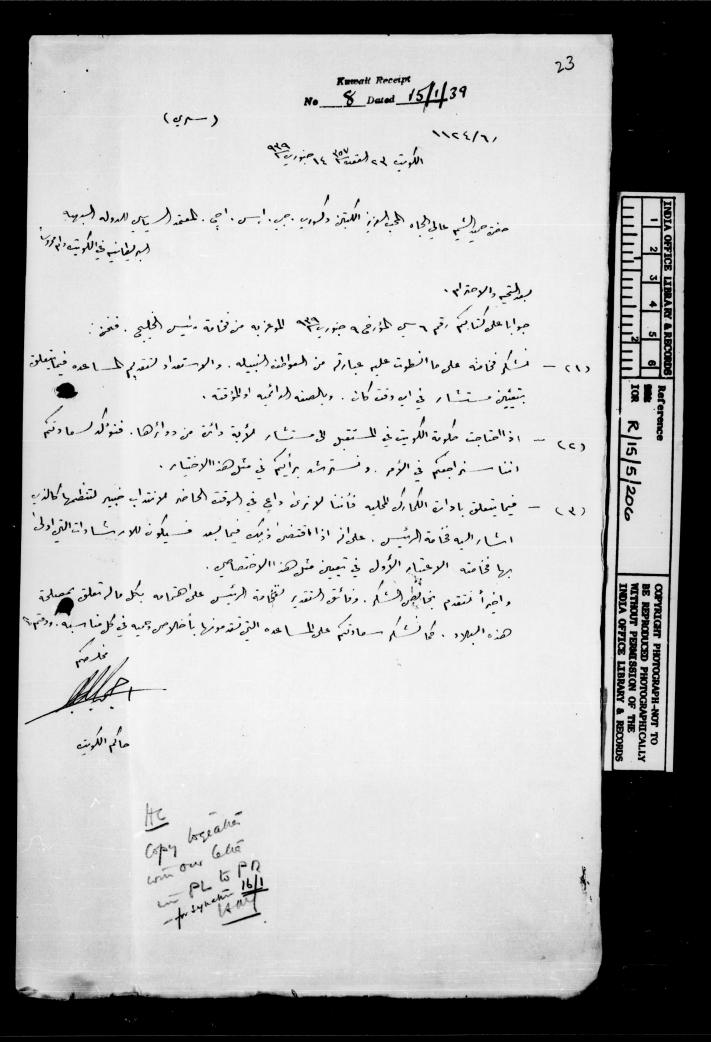 23
Kuwait Receipt
No 8 Dated 15/1/39
(سري)
١١٢٤/٦/
الكويت ٢٣ القعده ٣٥٧ ١٤ جنوري ٩٣٩
حضرة حميد الشيم عالي الجاه المحب العزيز الكبتن دكوري . جي . ايس . اچ . المعتمد السياسي للدولة البهيه
البريطانيه في الكويت دام محروسا
بعد التحية والاحترام .
جوابا على كتابكم رقم ٦ سي المؤرخ ٩ جنوري ٩٣٩ الموعز به من فخامة رئيس الخليج . فنحن :
(١) - نشكر فخامته على ما انطوت عليه عبارته من العواطف النبيله . والاستعداد لتقديم المساعده فيما يتعلق
بتعيين مستشار في اي وقت كان . وبالصفه الدائميه او المؤقته .
(٢) - اذا احتاجت حكومة الكويت في المستقبل الى مستشار لأية دائرة من دوائرها . فنؤكد لسعادتكم
اننا سنراجعكم في الأمر . ونسترشد برأيكم في مثل هذا الاختيار .
(٣) - فيما يتعلق بادارة الكمارك المحليه فأننا لا نرى داع في الوقت الحاضر لانتداب خبير لتنظيمها كالذي
اشار اليه فخامة الرئيس . على انه اذا اقتضى ذلك فيما بعد فسيكون للارشادات التي ادلى
بها فخامته الاعتبار الأول في تعيين مثل هذا الاختصاصي .
واخيراً نتقدم بخالص الشكر . وفائق التقدير لفخامة الرئيس على اهتمامه بكل ما له تعلق بمصلحة
هذه البلاد . كما نشكر سعادتكم على المساعده التي تقدمونها بأخلاص وحميه في كل مناسبه . ودمتم
مخلصكم
حاكم الكويت
HC
Copy together
with our letter
PL to PR
for Synch
16/1
INDIA OFFICE LIBRARY & RECORDS
1 2 3 4 5 6
1 2
Reference
IOR R/15/5/206
COPYRIGHT PHOTOGRAPH-NOT TO
BE REPRODUCED PHOTOGRAPHICALLY
WITHOUT PERMISSION OF THE
INDIA OFFICE LIBRARY & RECORDS